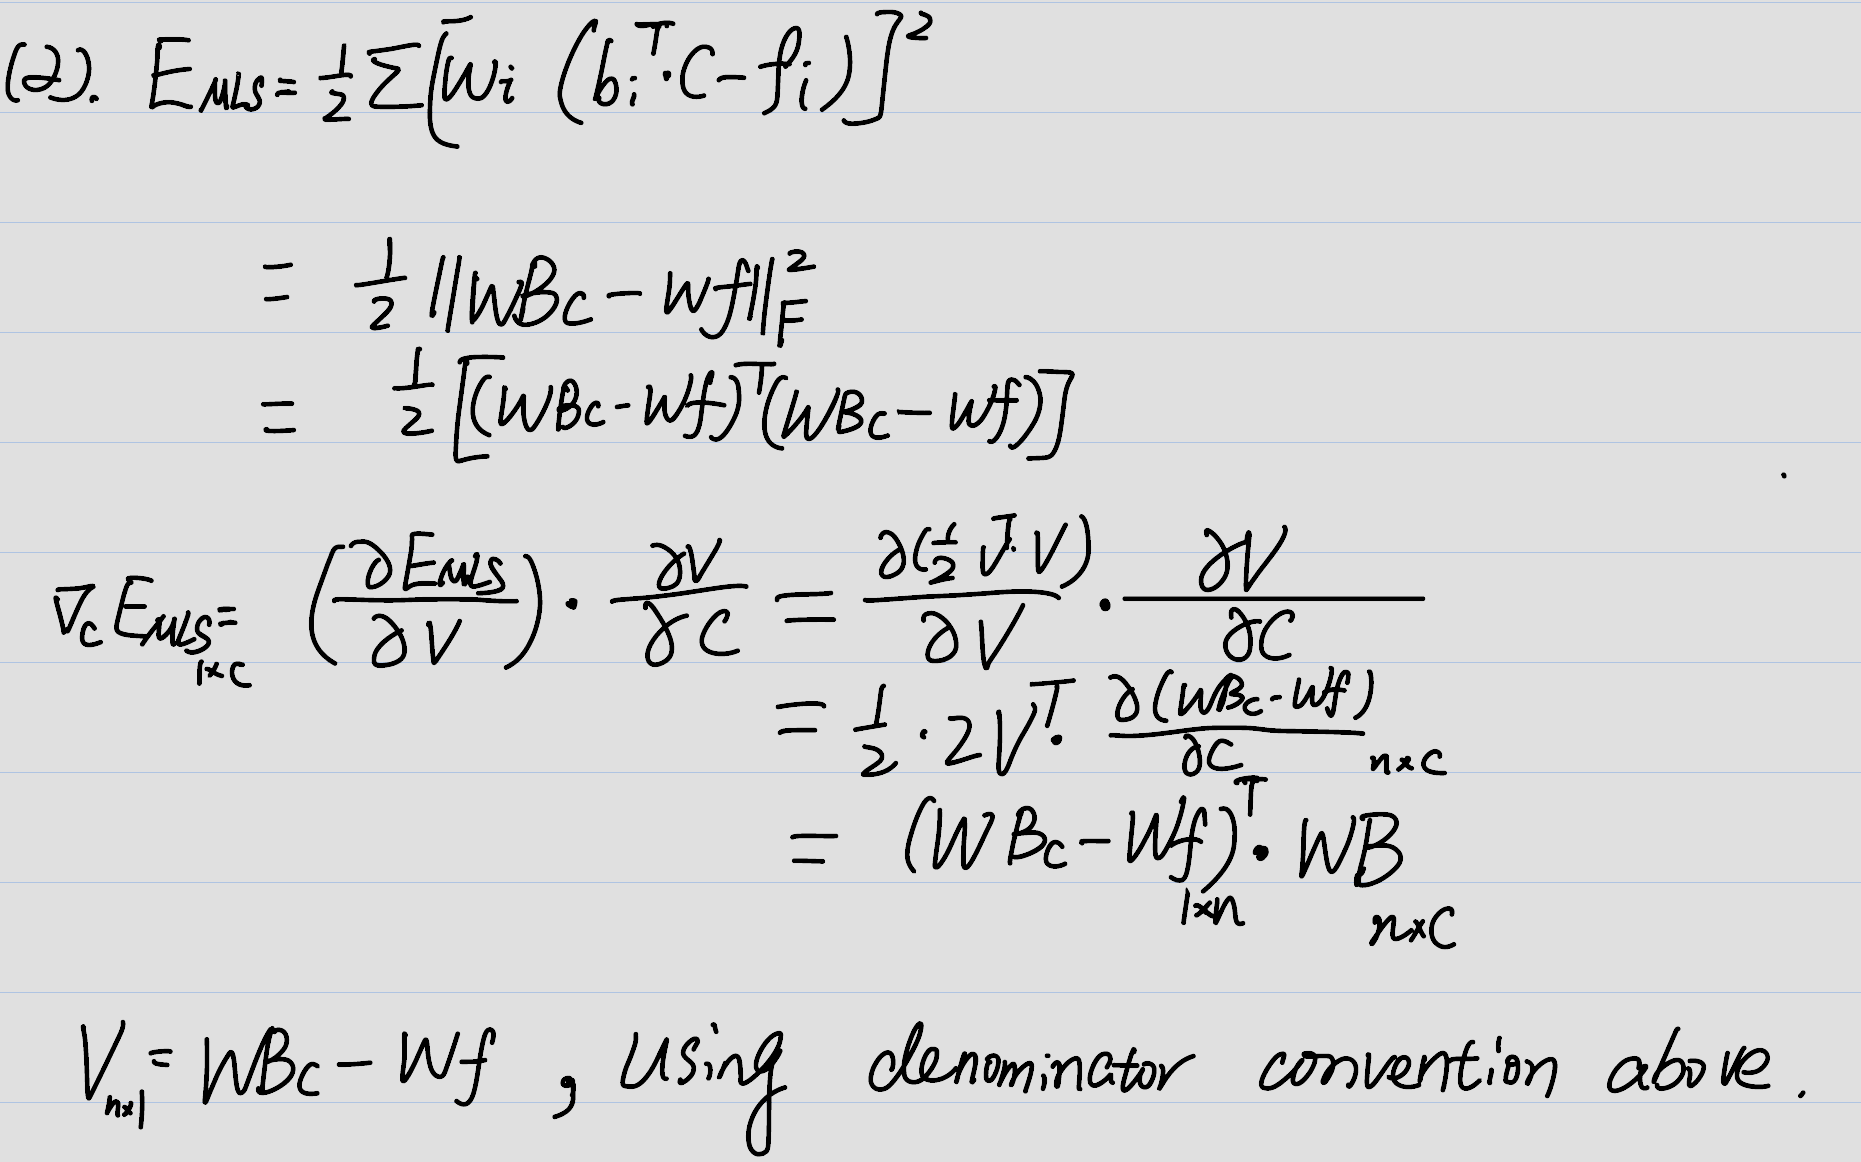 (2). E_MLS = 1/2 Σ[w_i (b_i^T · C - f_i)]^2
= 1/2 ||WBc - Wf||_F^2
= 1/2 [(WBc - Wf)^T (WBc - Wf)]
∇_c E_MLS 1×C = (∂E_MLS / ∂V) · ∂V / ∂C = ∂(1/2 V^T · V) / ∂V · ∂V / ∂C
= 1/2 · 2V^T · ∂(WBc - Wf) / ∂C n×C
= (WBc - Wf)^T 1×n · WB n×C
V_n×1 = WBc - Wf , using denominator convention above.